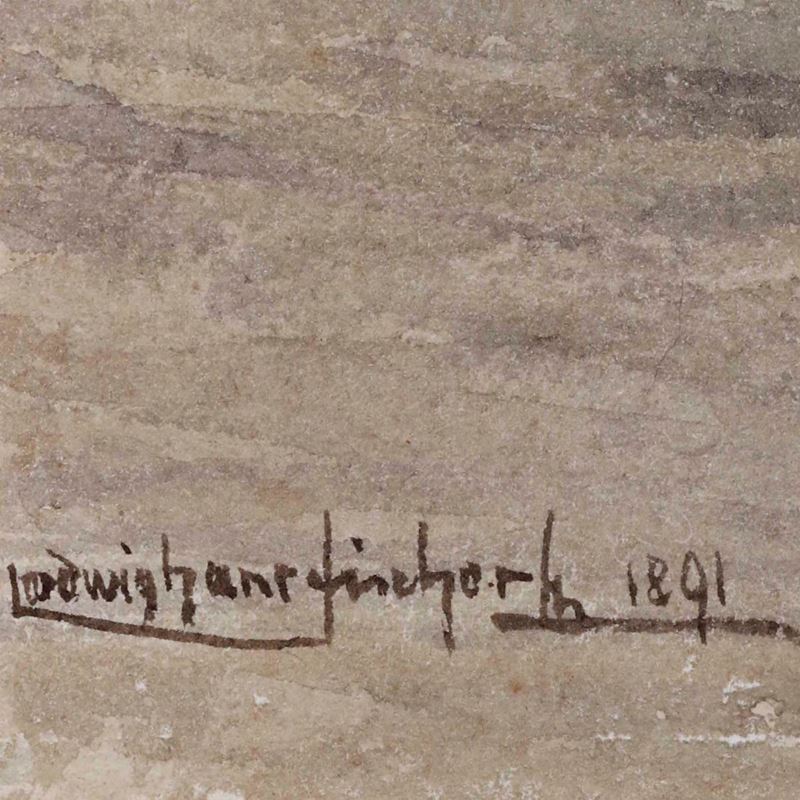 Ludwig Hans Fischer 1891